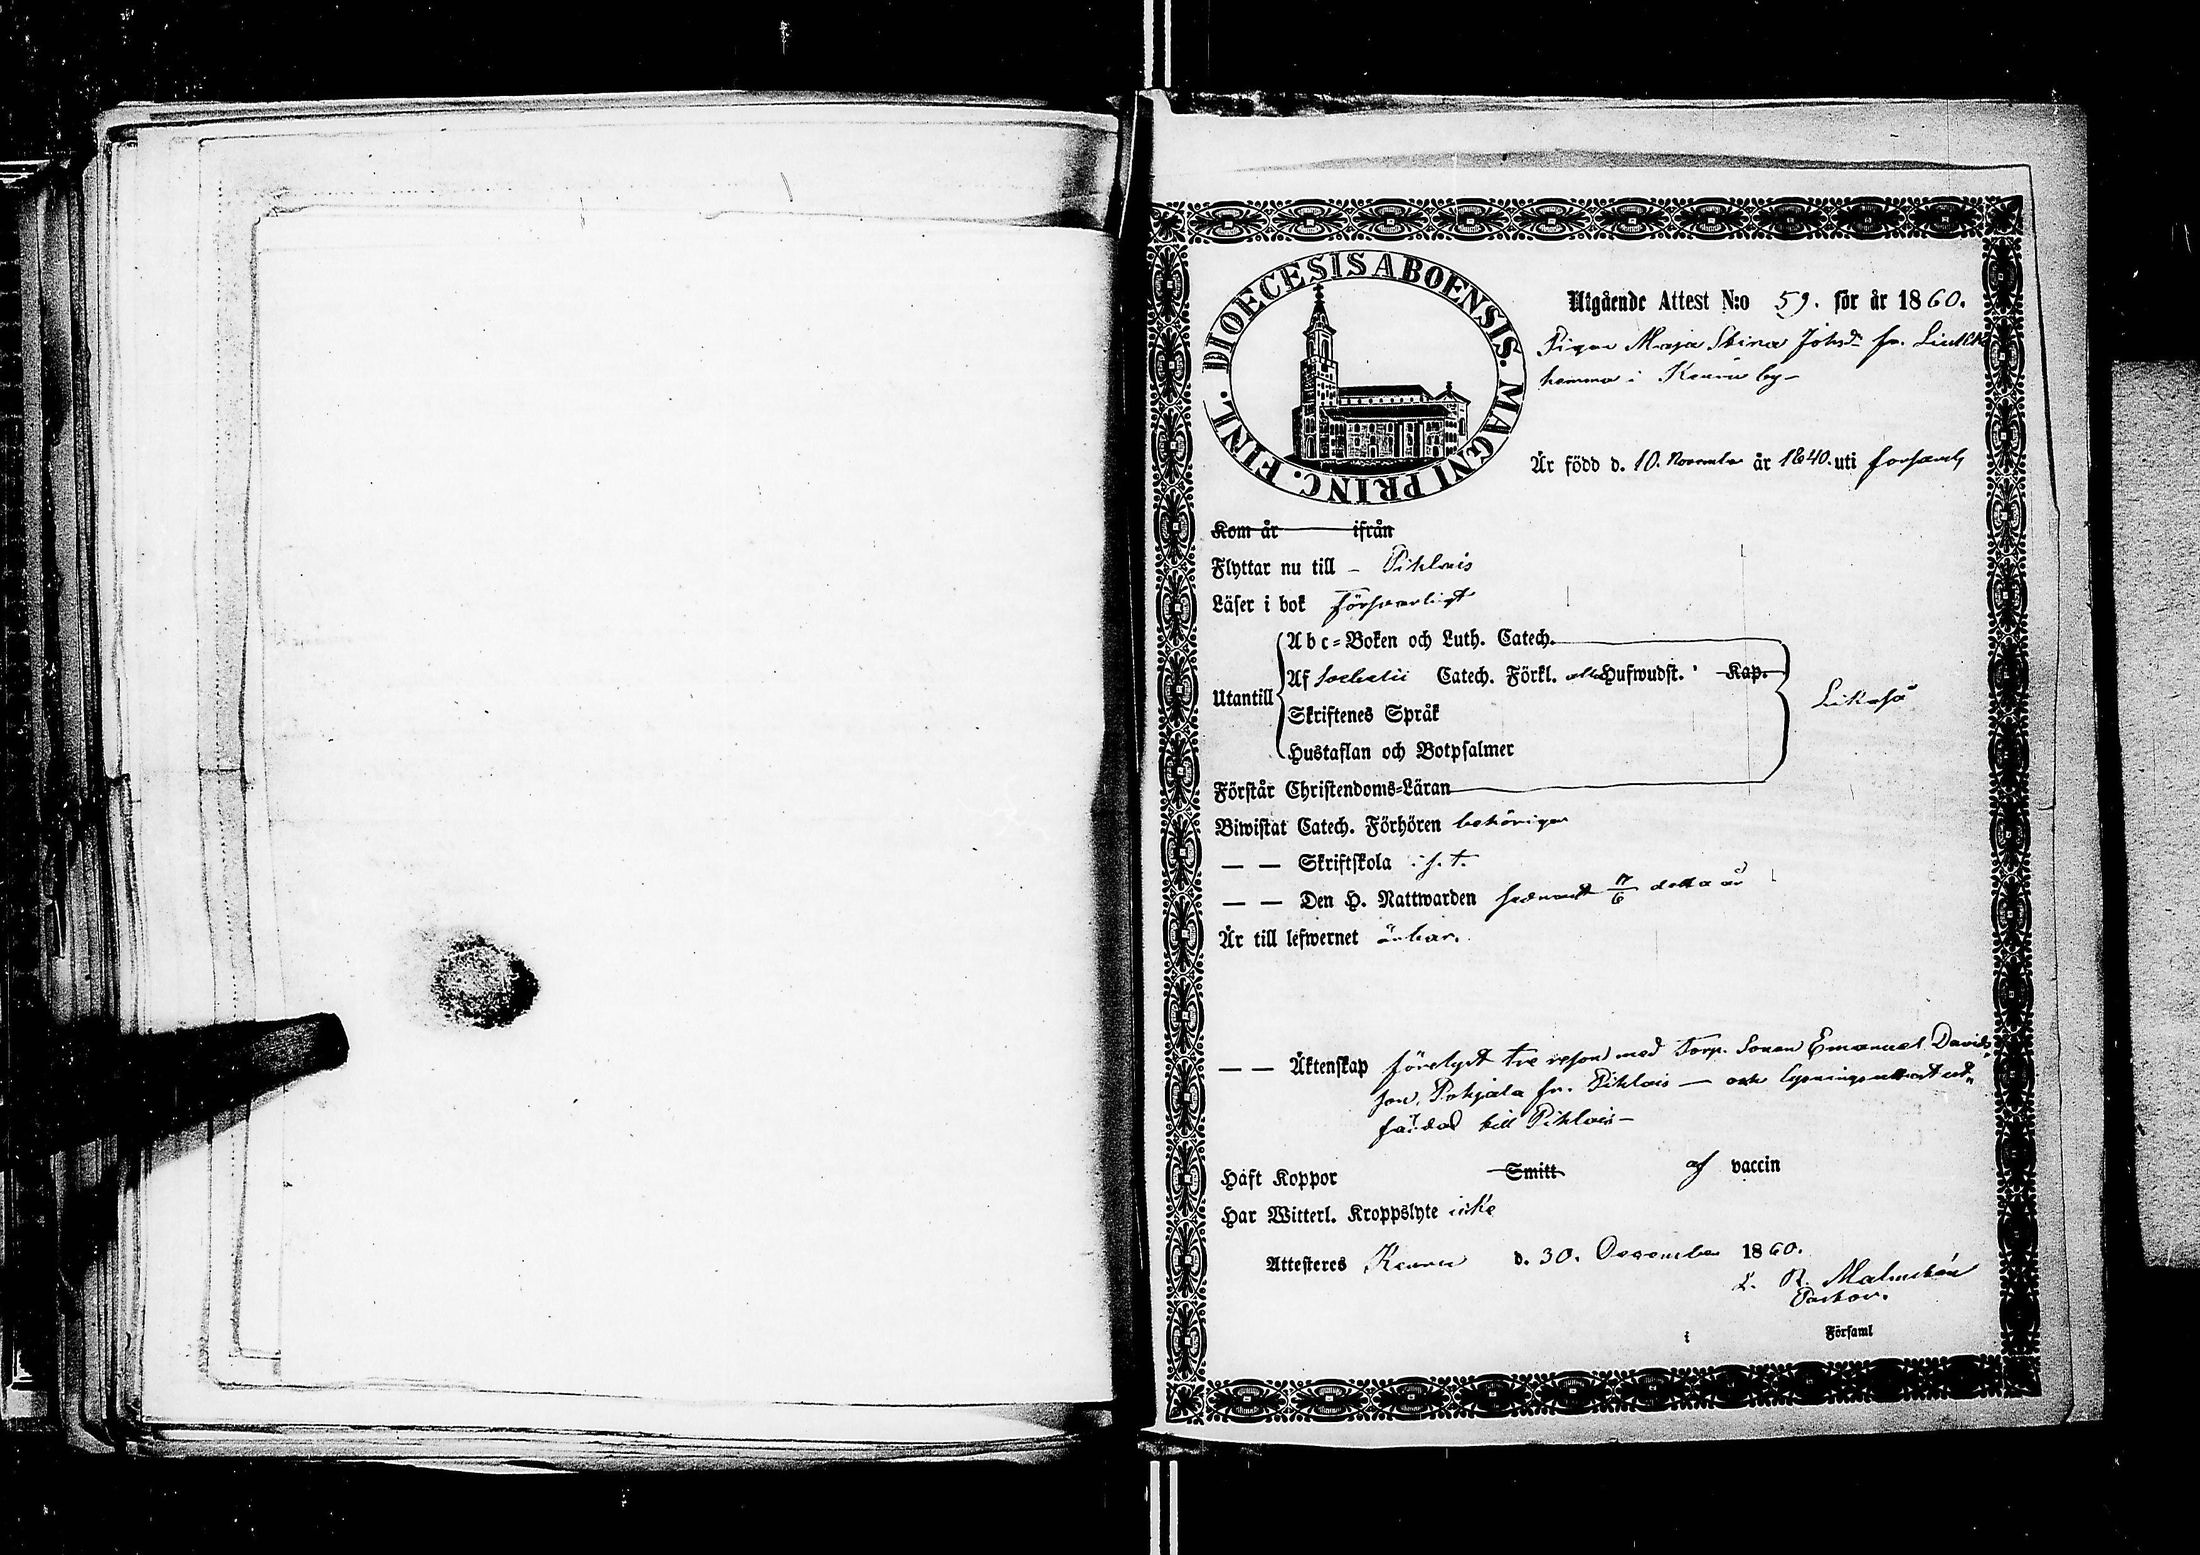 DIOECESIS ABOENSIS. MAGNI PRINC. FINL.
Utgående Attest N:o 59. för år 1860.
Pigan Maja Stina Johsdr fr.
hemma i Keuru by
Är född d. 10. November år 1840. uti förs.
Kom år ifrån
Flyttar nu till – Pihlais
Läser i bok försvarligt
Utantill
Abc-Boken och Luth. Catech.
Af Catech. Förkl. alla Hufwudst. Kap.
Skriftenes Språk
Hustaflan och Botpsalmer
Likaså
Förstår Christendoms-Läran
Biwistat Catech. Förhören behörigen
— — Skriftskola i s. t.
— — Den H. Nattwarden sednast 17/6 detta år
Är till lefwernet ärbar.
— — Äktenskap förelyst tre resor med Torp. Sonen Emanuel Davids-
son Pohjala fr. Pihlais — och lysningsattest ut-
färdad till Pihlais —
Haft Koppor Smitt af vaccin
Har Witterl. Kroppslyte icke
Attesteres Keuru d. 30. December 1860.
L. R. Malmstén
Pastor.
i Församl